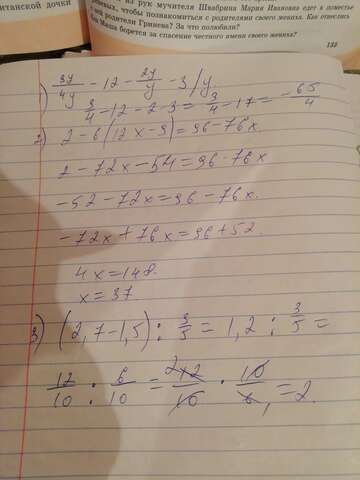 итанской дочки
из рук мучителя Швабрина Мария Ивановна едет в поместье
чтобы познакомиться с родителями своего жениха. Как отнеслись
родители Гринёва? За что полюбили?
Маша борется за спасение честного имени своего жениха?
133
1) 3y/4y - 12 - 2y/y - 3/y.
3/4 - 12 - 2 - 3 = 3/4 - 17 = -65/4
2) 2 - 6(12x - 9) = 96 - 76x
2 - 72x - 54 = 96 - 76x
-52 - 72x = 96 - 76x.
-72x + 76x = 96 + 52.
4x = 148.
x = 37
3) (2,7 - 1,5) : 3/5 = 1,2 : 3/5 =
12/10 : 6/10 = 12/10 · 10/6 = 2.